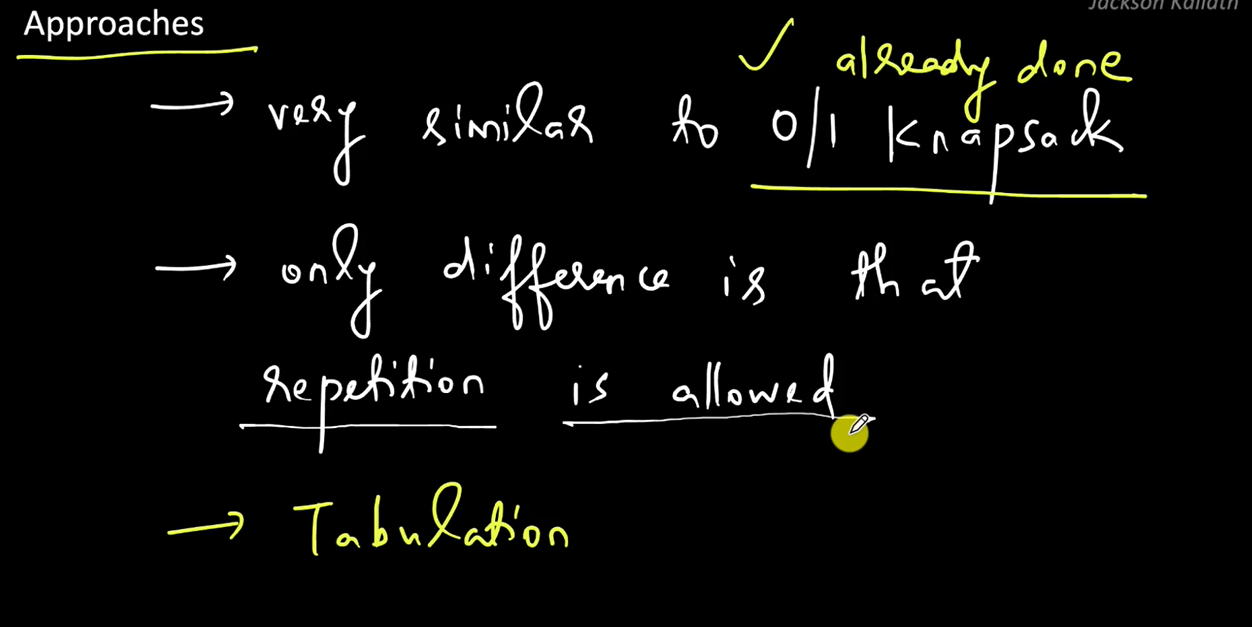 Jackson Kallath
Approaches
✓ already done
→ very similar to 0/1 Knapsack
→ only difference is that
repetition is allowed
→ Tabulation